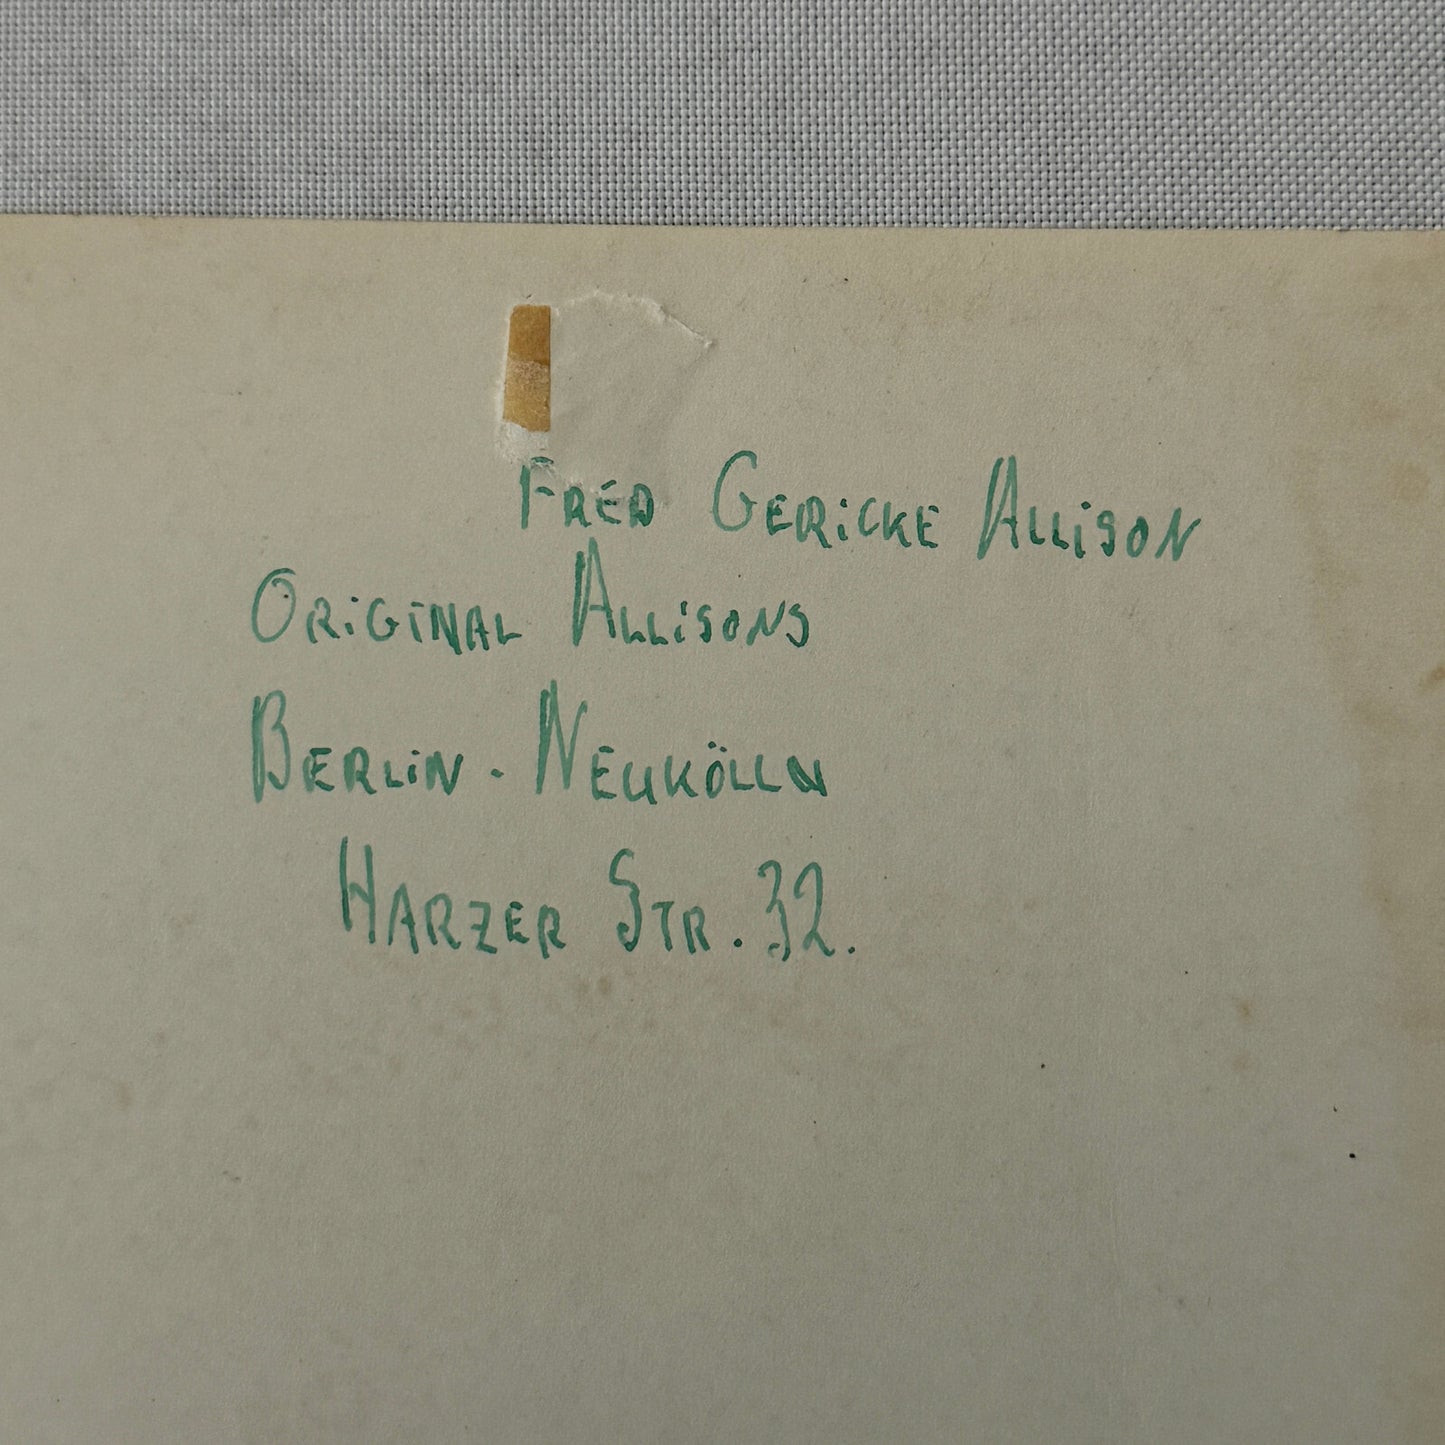 Fred Gericke Allison
Original Allisons
Berlin - Neukölln
Harzer Str. 32.